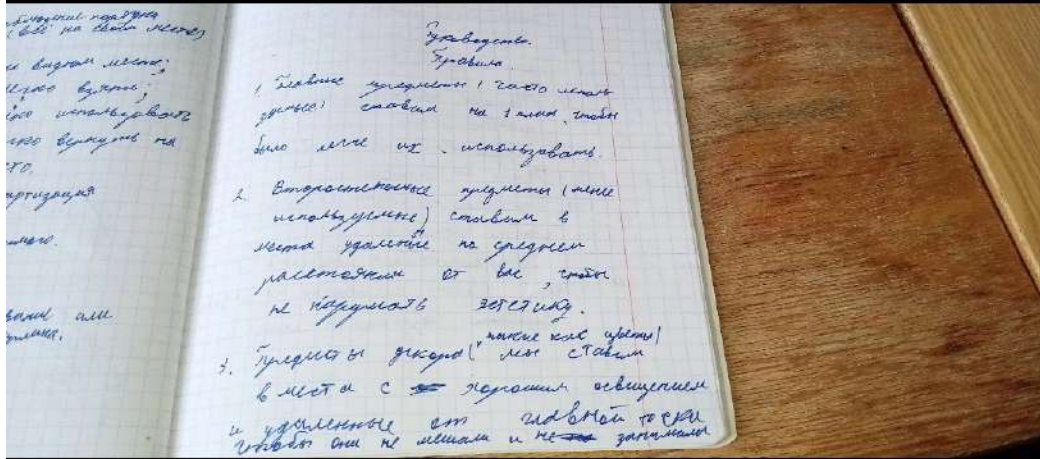 (всё на своём месте)
на видном месте;
легко взять;
использовать
вернуть на
сто.
Руководство.
Правила.
1. Главные предметы (часто исполь
зуемые) ставим на 1 план, чтобы
было легче их использовать.
2. Второстепенные предметы (менее
используемые) ставим в
места удалённые на среднем
расстоянии от вас, чтобы
не нарушать эстетику.
3. Предметы декора (такие как цветы)
мы ставим
в места с хорошим освещением
и удаленные от главной точки
чтобы они не мешали и не занимали